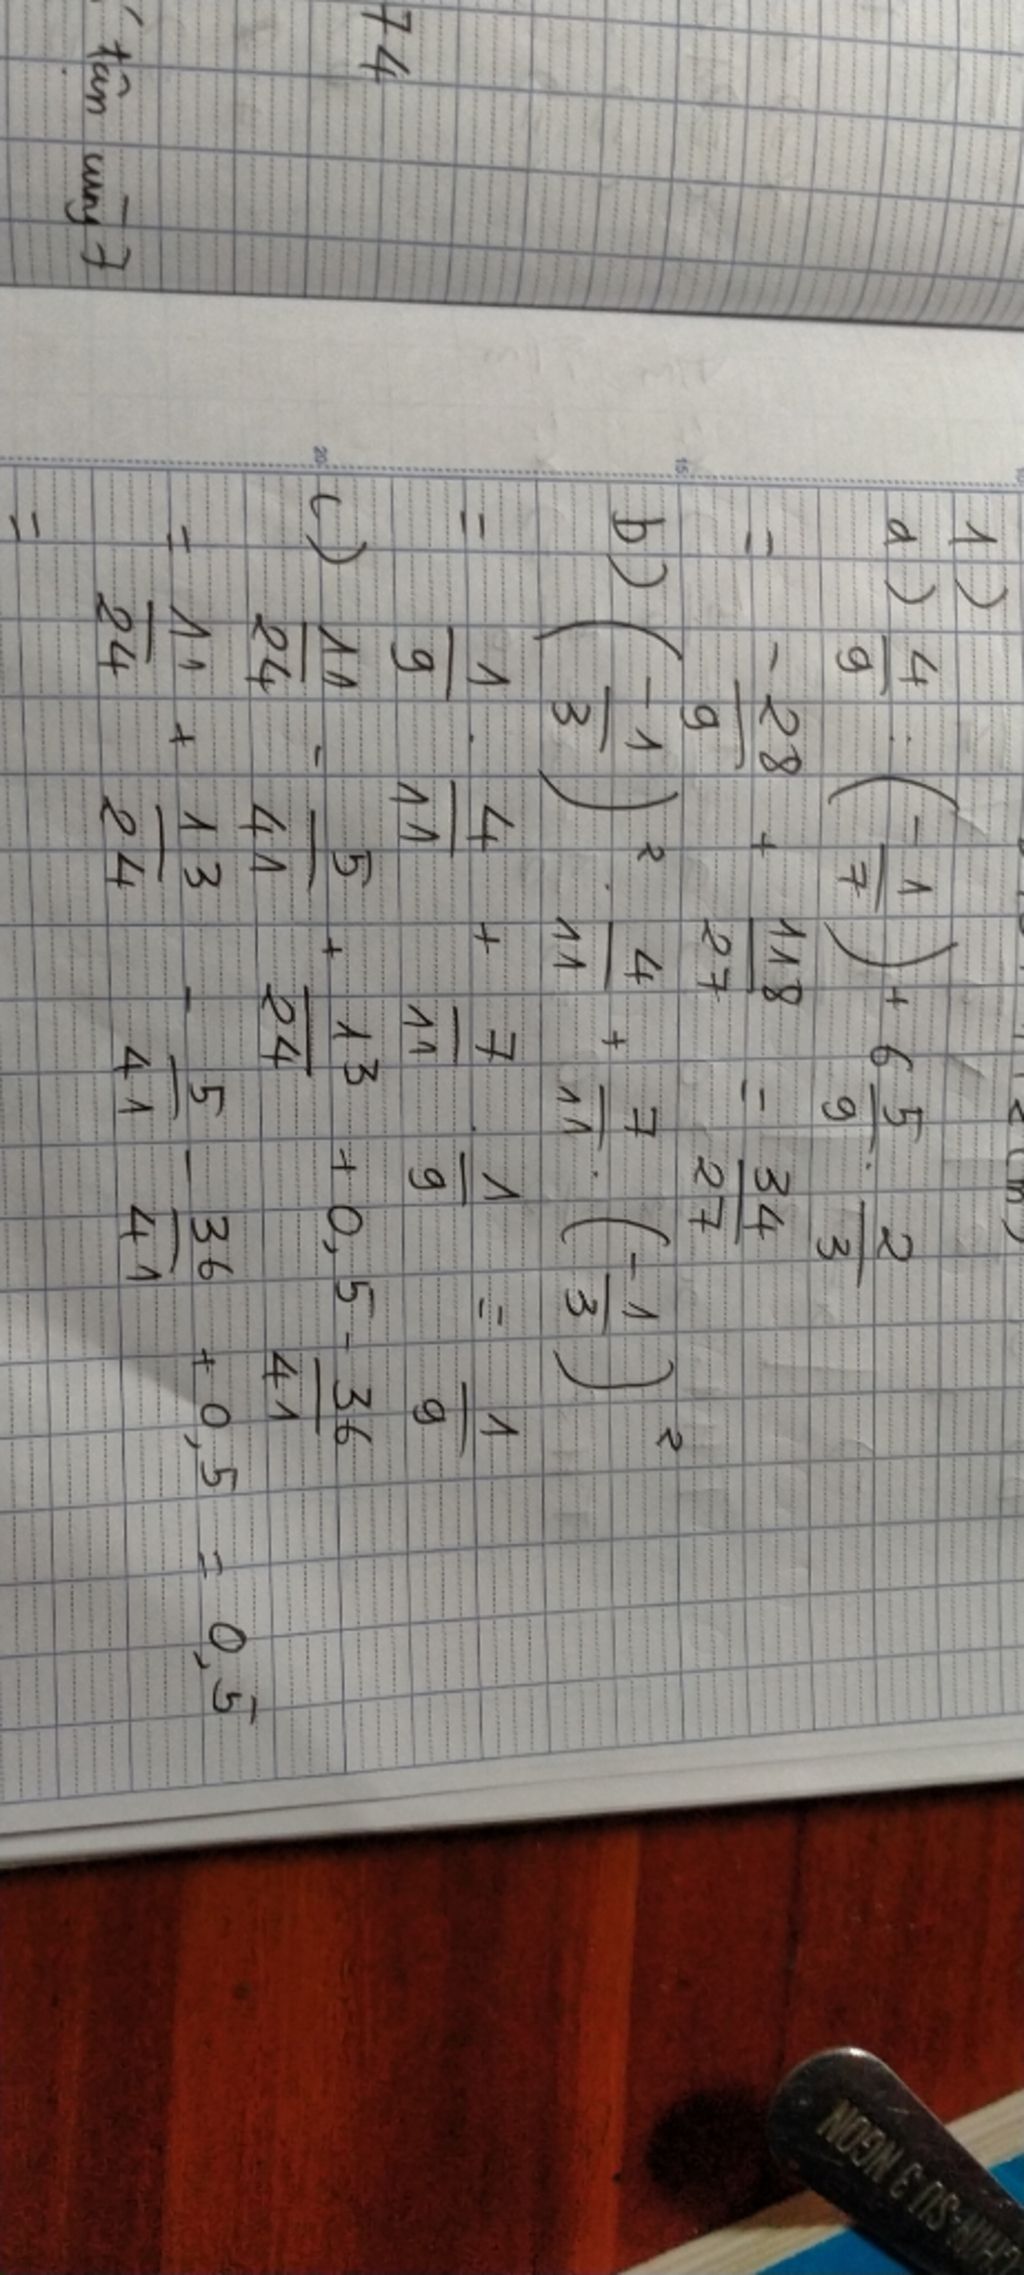 74
tân cùng 7
1)
a) 4/9 : (-1/7) + 6 5/9 . 2/3
= -28/9 + 118/27 = 34/27
b) (-1/3)² . 4/11 + 7/11 . (-1/3)²
= 1/9 . 4/11 + 7/11 . 1/9 = 1/9
c) 11/24 - 5/41 + 13/24 + 0,5 - 36/41
= 11/24 + 13/24 - 5/41 - 36/41 + 0,5 = 0,5
=
15
20
SUJ 3 NGON